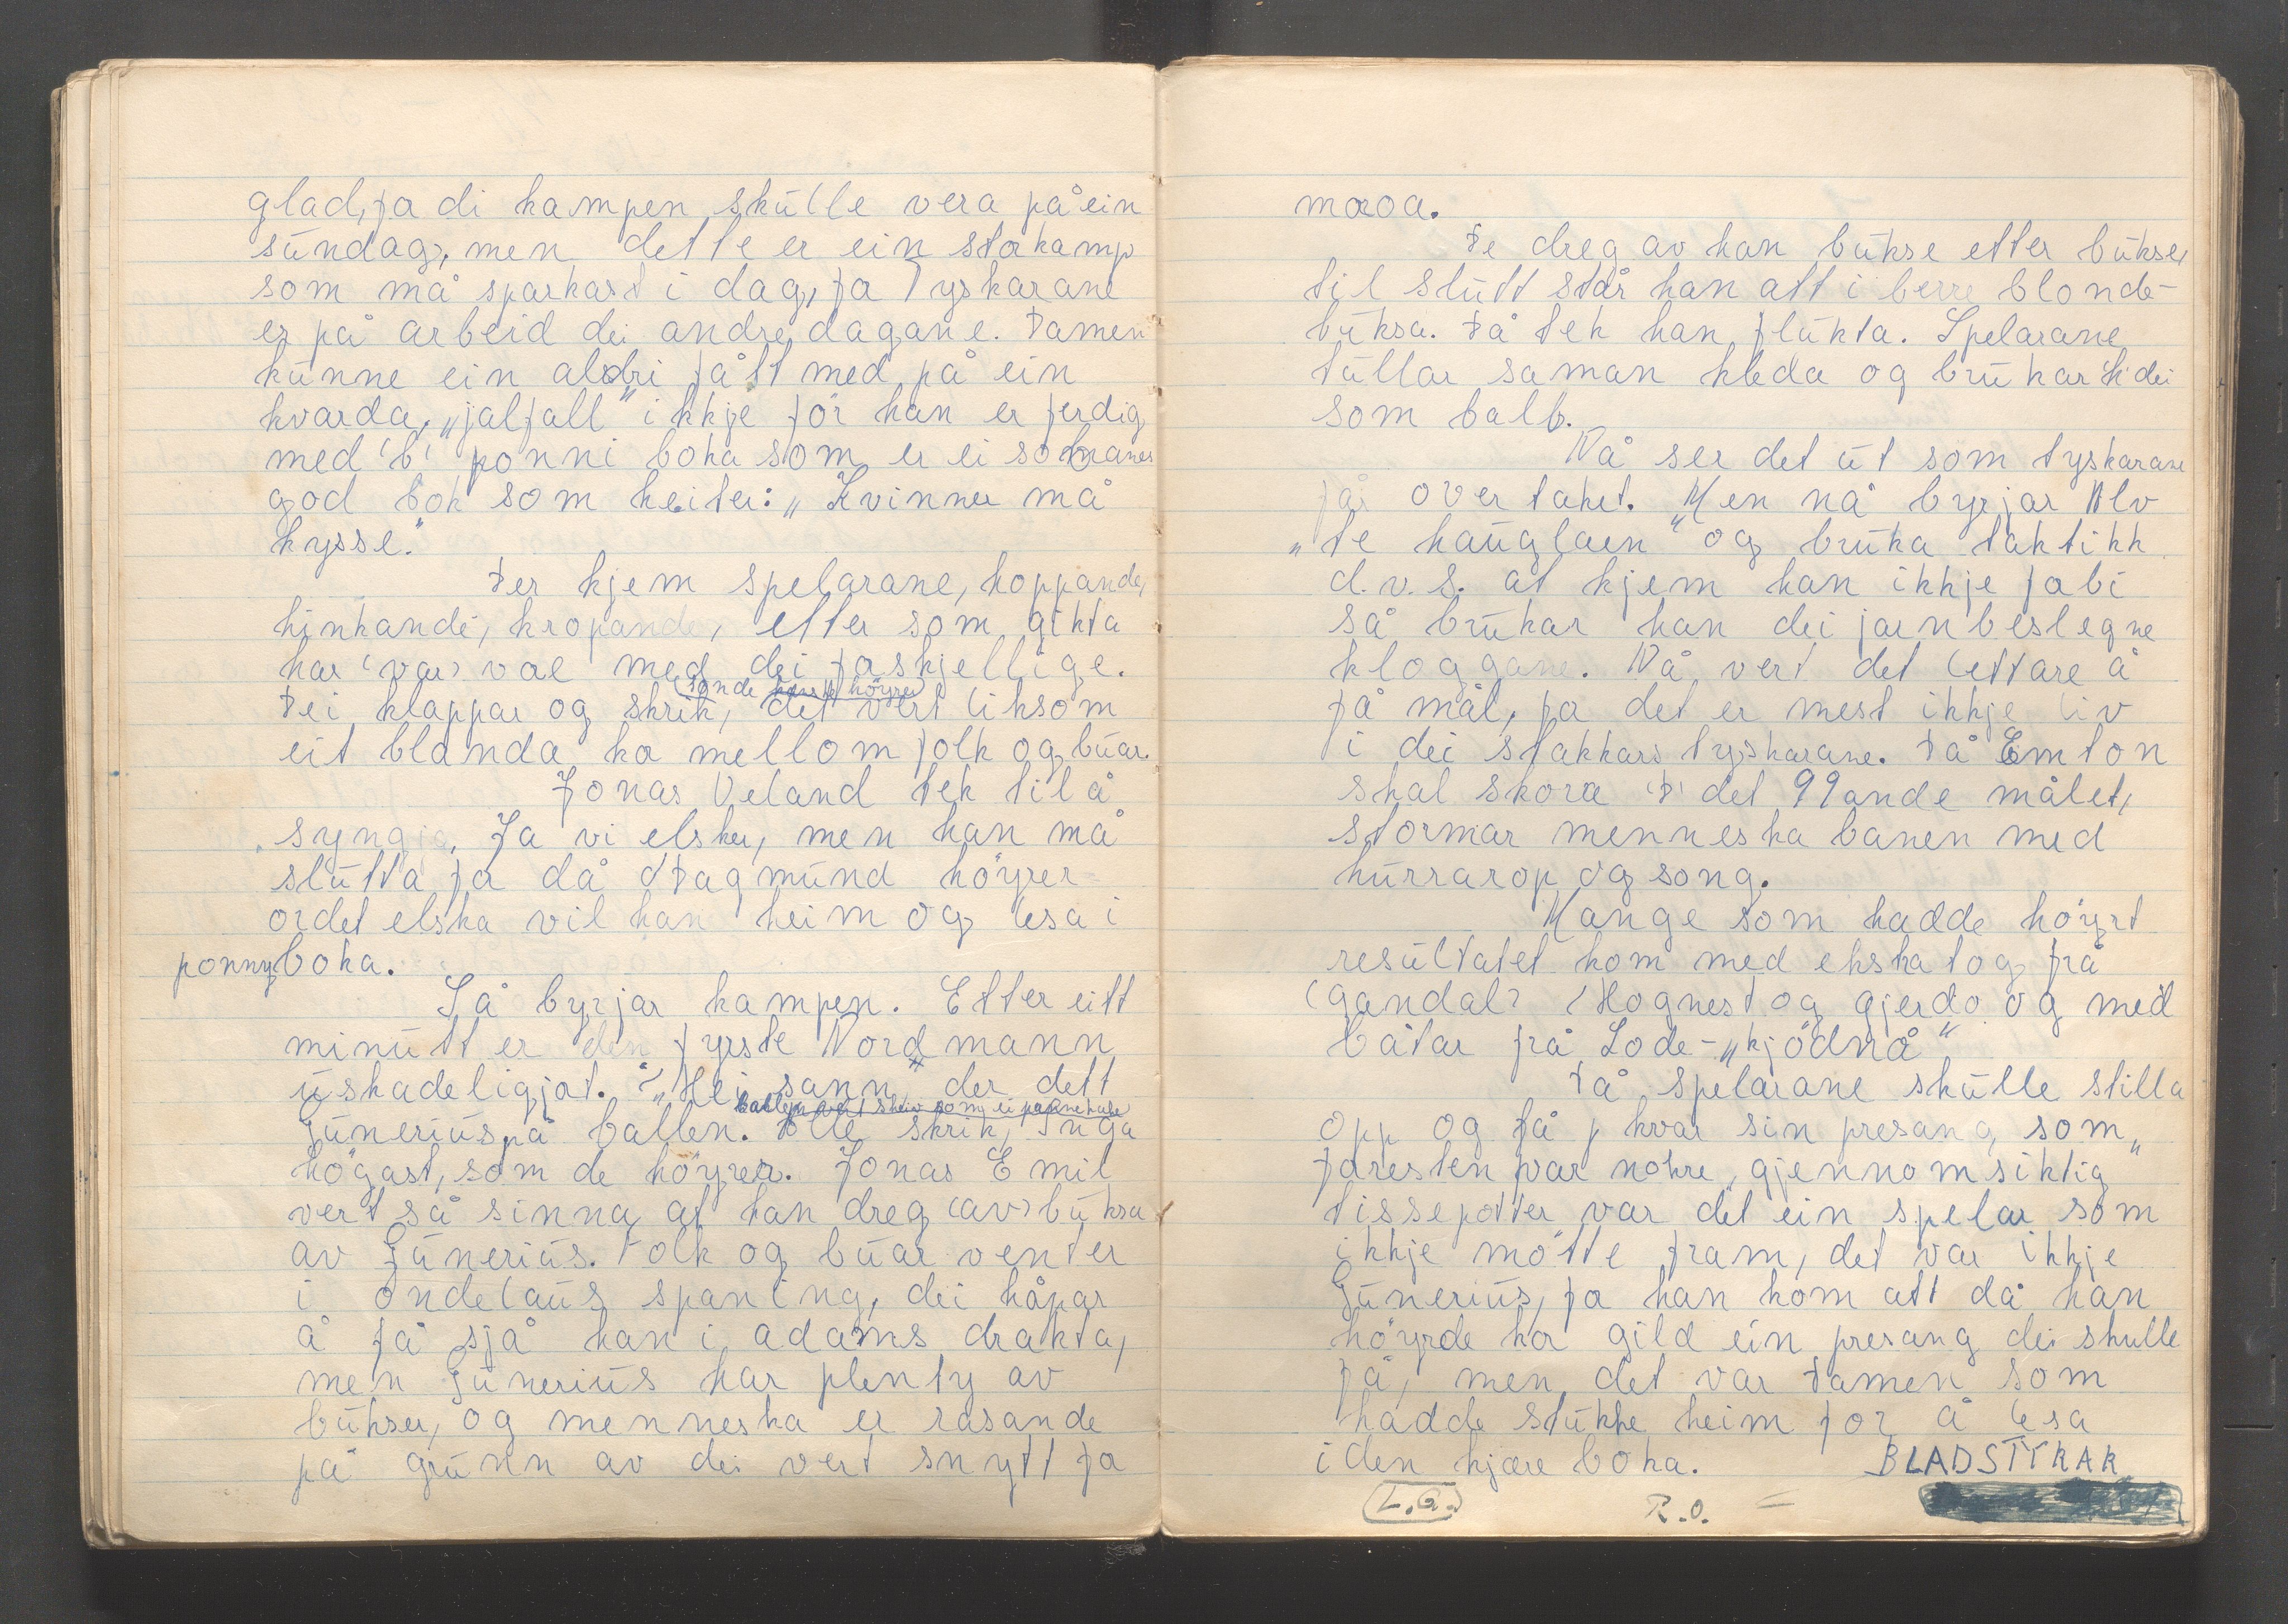 glad, fa di kampen skulle vera på ein
sundag, men dette er ein stakamp
som må sparkast i dag, fa Tyskarane
er på arbeid dei andre dagane. Damen
kunne ein aldri fått med på ein
kvarda, „jalfall" ikkje før han er ferdig
med (b) ponni boka som er ei
god bok som heiter: „Kvinner må
kysse."
Der kjem spelarane, hoppande,
hinkande, kropande, etter som gikta
har (var) væl med dei faskjellige.
(sande høyre)
Dei klappar og skrik, det vert liksom
eit blanda ka mellom folk og buar.
Jonas Veland tek til å
syngja, Ja vi elsker, men han må
slutta fa då Dagmund høyrer
ordet elska vil han heim og lesa i
ponnyboka.
Så byrjar kampen. Etter eitt
minutt er den fyrste Nordmann
uskadeligjat. „Hei sann" der dett
ballen vert skeiv som ei pannekake
Gunerius på ballen. Alle skrik, Inga
høgast, som de høyrer. Jonas Emil
vert så sinna at han dreg (av) buksa
av Gunerius. Folk og buar venter
i åndelaus spaning, dei håpar
å få sjå han i adams drakta,
men Gunerius har plenty av
bukser, og menneska er rasande
på grunn av dei vert snytt fa
maroa.
De dreg av han bukse etter bukse,
til slutt står han att i berre blonde-
buksa. Då tek han flukta. Spelarane
tullar saman kleda og brukar dei
som ball.
Nå ser det ut som tyskarane
får overtaket. Men nå byrjar Alv
„te hauglaen" og bruka taktikk
d.v.s. at kjem han ikkje fabi
så brukar han dei jarnbeslegne
kloggane. Nå vert det lettare å
få mål, fa det er mest ikkje liv
i dei stakkars tyskarane. Då Emton
skal skora (D) det 99ande målet,
stormar menneska banen med
hurrarop og song.
Mange som hadde høyrt
resultatet kom med ekskatog frå
(gandal) (Hognest og gjerdo og med
båtar frå Lode-„kjødnå"
Då spelarane skulle stilla
opp og få kvar sin presang som
faresten var nokre „gjennomsiktig"
tissepotter var det ein spelar som
ikkje møtte fram, det var ikkje
Gunerius, fa han kom att då han
høyrde ka gild ein presang dei skulle
få, men det var Damen som
hadde stukke heim for å lesa
i den kjære boka. BLADSTYRAR
L.G. R.O.